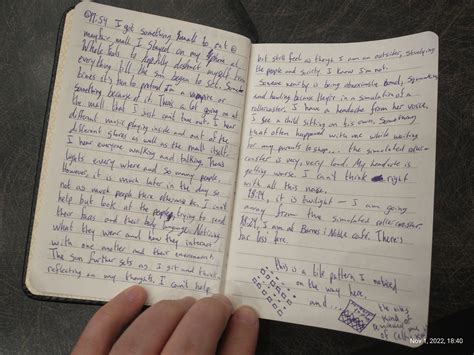 @17:54 I got something small to eat @
mayfair mall. I stayed on my phone at
Whole Foods to hopefully distract myself from
everything till the sun began to set. Some
times it's fun to pretend I'm a vampire or
something because of it. There's a lot going on at
the mall that I just can't tune out. I hear
different music playing inside and out of the
different stores as well as the mall itself.
I hear everyone walking and talking. There's
lights every where and so many people.
However, it is much later in the day so
not as much people there otherwise be. I can't
help but look at the people, trying to read
their faces and their body language. Noticing
what they wear and how they interact
with one another and their environment.
The sun further sets as I sit and think
reflecting on my thoughts. I can't help
but still feel as though I am an outsider, studying
the people and society. I know I'm not.
Someone nearby is being obnoxiously loud,
and howling because they're in a simulation of a
rollercoaster. I have a headache from her voice.
I see a child sitting on his own, something
that often happened with me while waiting
for my parents to shop... the simulated roller
coaster is very, very loud. My headache is
getting worse. I can't think right
with all this noise.
18:19, it is twilight - I am going
away from the simulated rollercoaster.
18:29, I am at Barnes & Noble cafe. There's
far less here.
this is a tile pattern I noticed
on the way here.
and...
the
kind of
a
of
Nov 1, 2022, 18:40